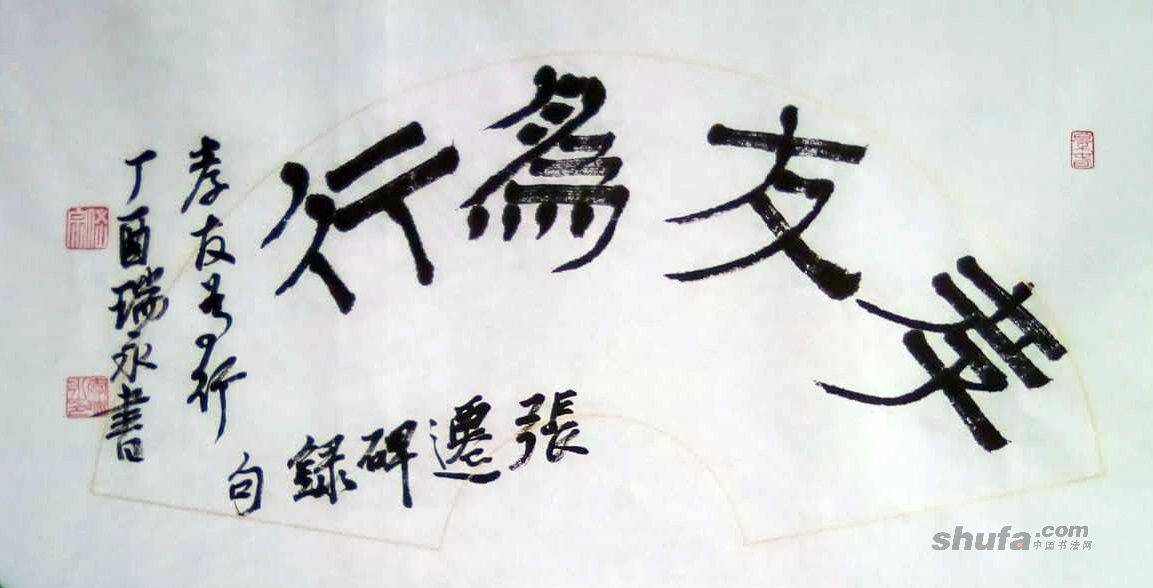 孝友為行
張遷碑錄句
孝友為行
丁酉瑞永書
shufa.com
中国书法网